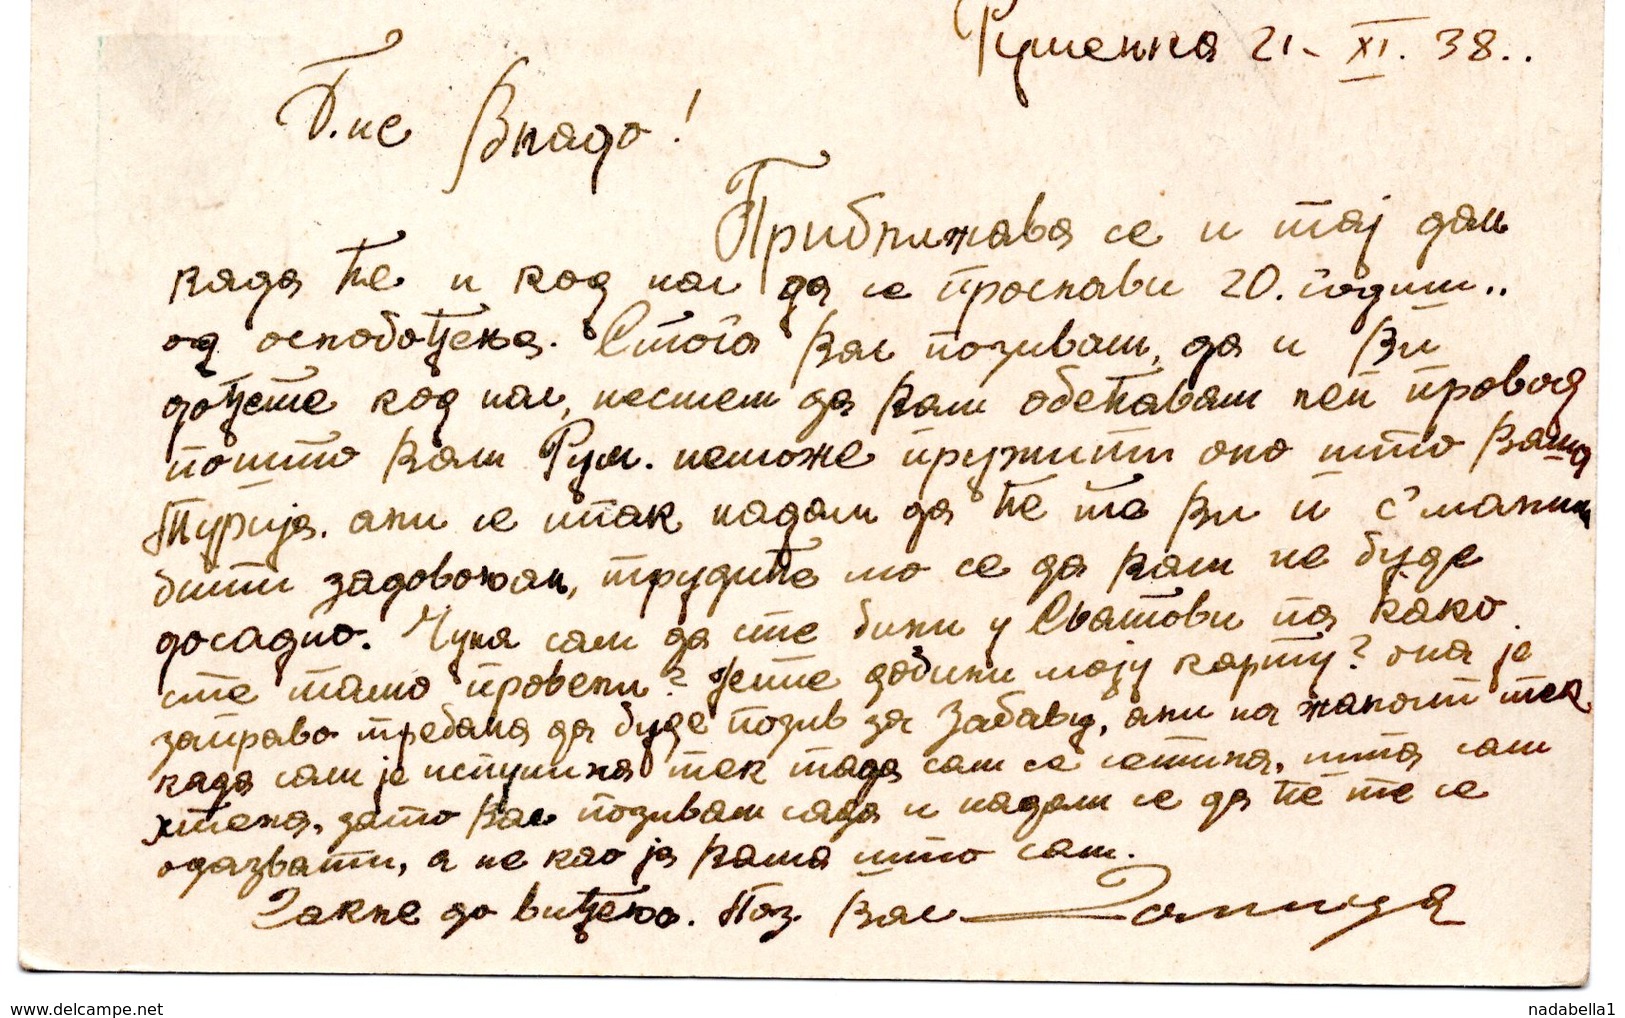 Руменка 21. XI. 38..
Г.не Владо!
Приближава се и тај дан
када ће и код нас да се прослави 20. годиш..
од ослобођења. Стога Вас позивам, да и Ви
дођете код нас, несмем да Вам обећавам леп провод
пошто Вам Рум. неможе пружити оно што Ваша
Турија. али се ипак надам да ће те Ви и с' малим
бити задовољан, трудиће мо се да Вам не буде
досадно. Чула сам да сте били у Сватови па како
сте тамо провели? Јесте добили моју карту? она је
заправо требала да буде позив за Забаву, али на жалост тек
када сам је испустила тек тада сам се сетила, шта сам
хтела, зато Вас позивам сада и надам се да ће те се
одазвати, а не као ја Вама што сам.
Дакле до виђења. Поз. Вас
www.delcampe.net
nadabella1